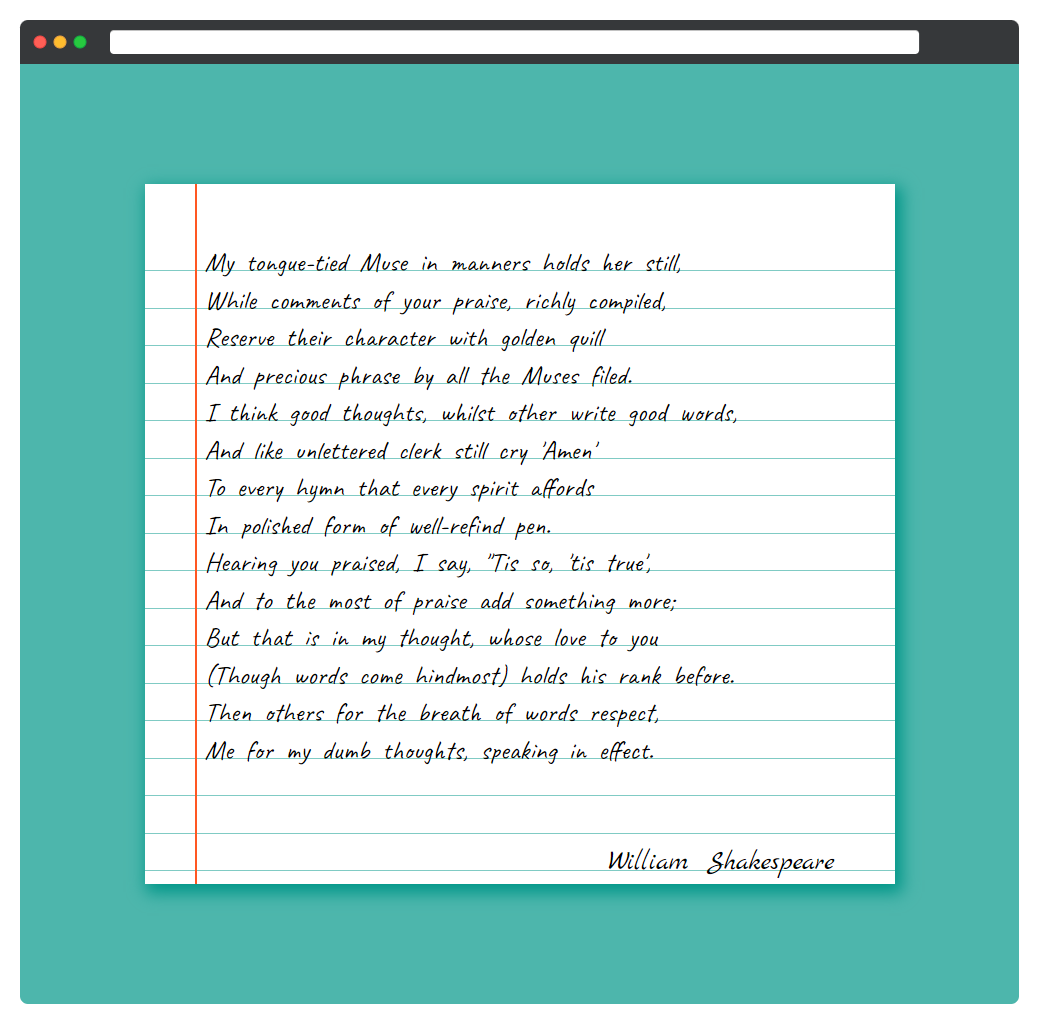 My tongue-tied Muse in manners holds her still,
While comments of your praise, richly compiled,
Reserve their character with golden quill
And precious phrase by all the Muses filed.
I think good thoughts, whilst other write good words,
And like unlettered clerk still cry 'Amen'
To every hymn that every spirit affords
In polished form of well-refind pen.
Hearing you praised, I say, "Tis so, 'tis true',
And to the most of praise add something more;
But that is in my thought, whose love to you
(Though words come hindmost) holds his rank before.
Then others for the breath of words respect,
Me for my dumb thoughts, speaking in effect.
William Shakespeare